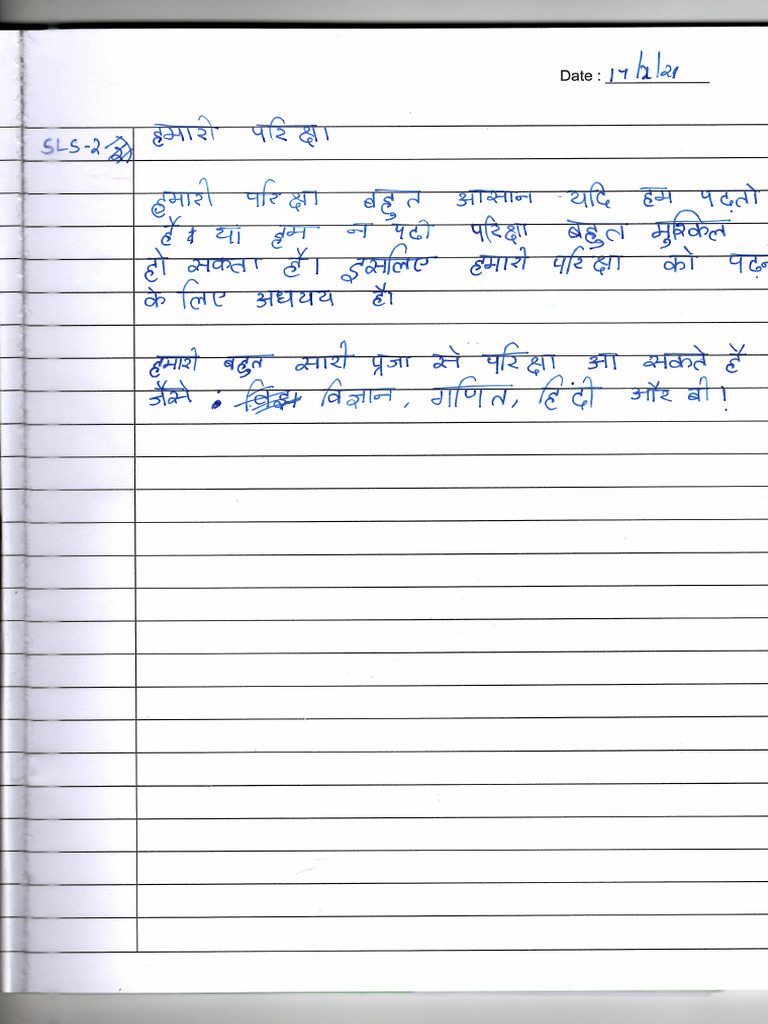 Date : 17/2/21
SLS-2 हमारी परिक्षा
हमारी परिक्षा बहुत आसान यदि हम पढ़तो
है या हम न पढी परिक्षा बहुत मुश्किल
हो सकता है। इसलिए हमारी परिक्षा को पढ़न
के लिए अधयय है।
हमारी बहुत सारी प्रजा से परिक्षा आ सकते है
जैसे : विज्ञान, गणित, हिंदी और बी!